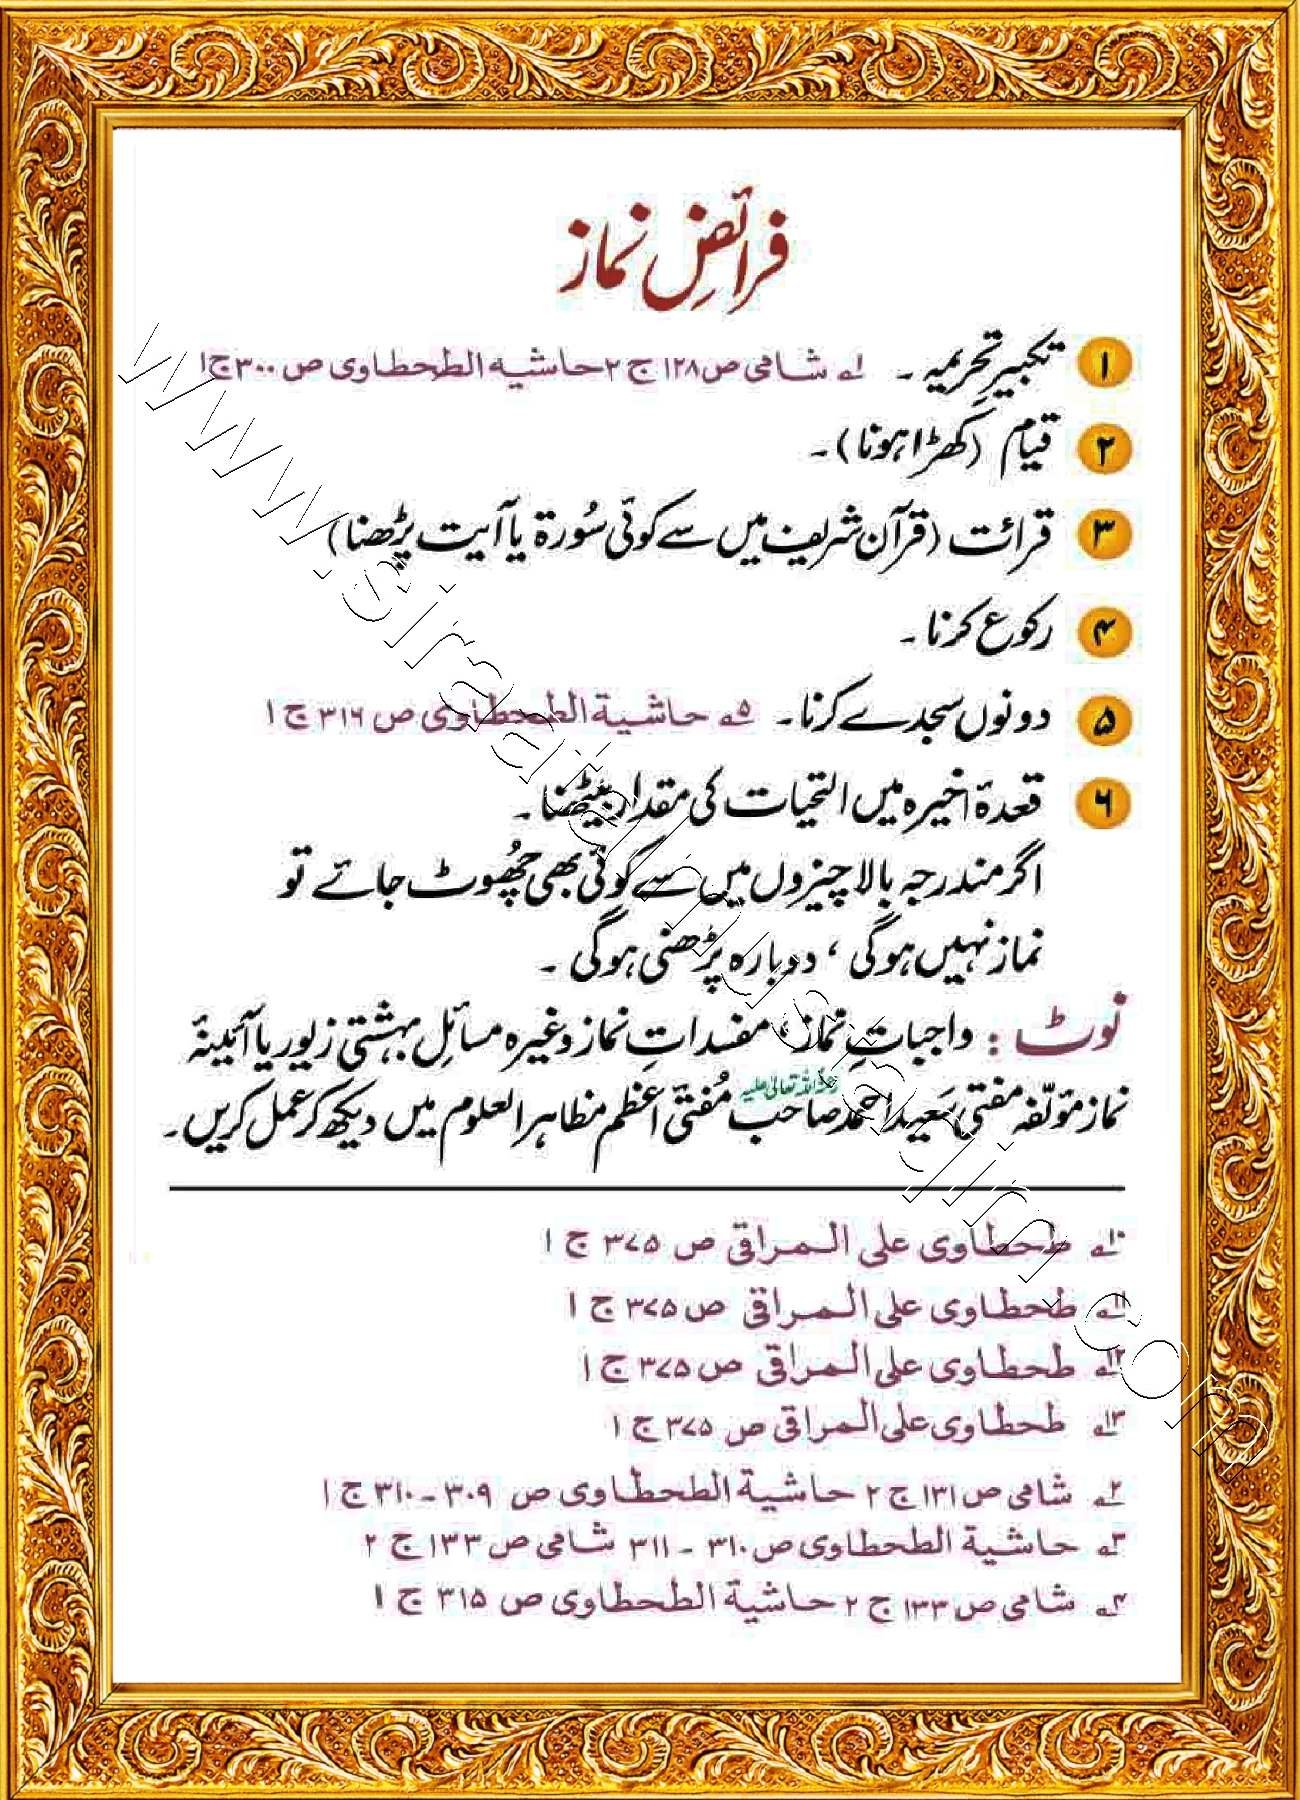 فرائضِ نماز
۱ تکبیرِ تحریمہ۔ ۱؎ شامی ص ۱۲۸ ج ۲ حاشیہ الطحطاوی ص ۳۰۰ ج ۱
۲ قیام (کھڑا ہونا)۔
۳ قرائت (قرآن شریف میں سے کوئی سُورۃ یا آیت پڑھنا)
۴ رکوع کرنا۔
۵ دونوں سجدے کرنا۔ ۵؎ حاشیۃ الطحطاوی ص ۳۱۶ ج ۱
۶ قعدۂ اخیرہ میں التحیات کی مقدار بیٹھنا۔
اگر مندرجہ بالا چیزوں میں سے کوئی بھی چھُوٹ جائے تو
نماز نہیں ہوگی، دوبارہ پڑھنی ہوگی۔
نوٹ: واجباتِ نماز، مفسداتِ نماز وغیرہ مسائلِ بہشتی زیور یا آئینۂ
نماز مؤلّفہ مفتی سَعید احمد صاحب رحمۃ اللہ تعالیٰ علیہ مُفتیٔ اعظم مظاہر العلوم میں دیکھ کر عمل کریں۔
۱۰؎ طحطاوی علی المراقی ص ۳۷۵ ج ۱
۱۱؎ طحطاوی علی المراقی ص ۳۷۵ ج ۱
۱۲؎ طحطاوی علی المراقی ص ۳۷۵ ج ۱
۱۳؎ طحطاوی علی المراقی ص ۳۷۵ ج ۱
۲؎ شامی ص ۱۳۱ ج ۲ حاشیۃ الطحطاوی ص ۳۰۹ ۔ ۳۱۰ ج ۱
۳؎ حاشیۃ الطحطاوی ص ۳۱۰ ۔ ۳۱۱ شامی ص ۱۳۳ ج ۲
۴؎ شامی ص ۱۳۳ ج ۲ حاشیۃ الطحطاوی ص ۳۱۵ ج ۱